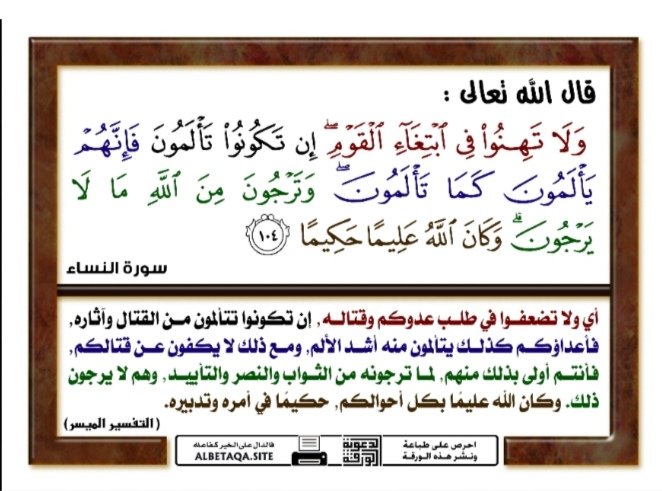 قال الله تعالى :
وَلَا تَهِنُوا۟ فِى ٱبْتِغَآءِ ٱلْقَوْمِ ۖ إِن تَكُونُوا۟ تَأْلَمُونَ فَإِنَّهُمْ
يَأْلَمُونَ كَمَا تَأْلَمُونَ ۖ وَتَرْجُونَ مِنَ ٱللَّهِ مَا لَا
يَرْجُونَ ۗ وَكَانَ ٱللَّهُ عَلِيمًا حَكِيمًا ١٠٤
سورة النساء
أي ولا تضعفوا في طلب عدوكم وقتاله, إن تكونوا تتألمون من القتال وآثاره,
فأعداؤكم كذلك يتألمون منه أشد الألم, ومع ذلك لا يكفون عن قتالكم,
فأنتم أولى بذلك منهم, لما ترجونه من الثواب والنصر والتأييد, وهم لا يرجون
ذلك. وكان الله عليمًا بكل أحوالكم, حكيمًا في أمره وتدبيره.
(التفسير الميسر)
احرص على طباعة
ونشر هذه الورقة
الورقة الدعوية
فالدال على الخير كفاعله
ALBETAQA.SITE